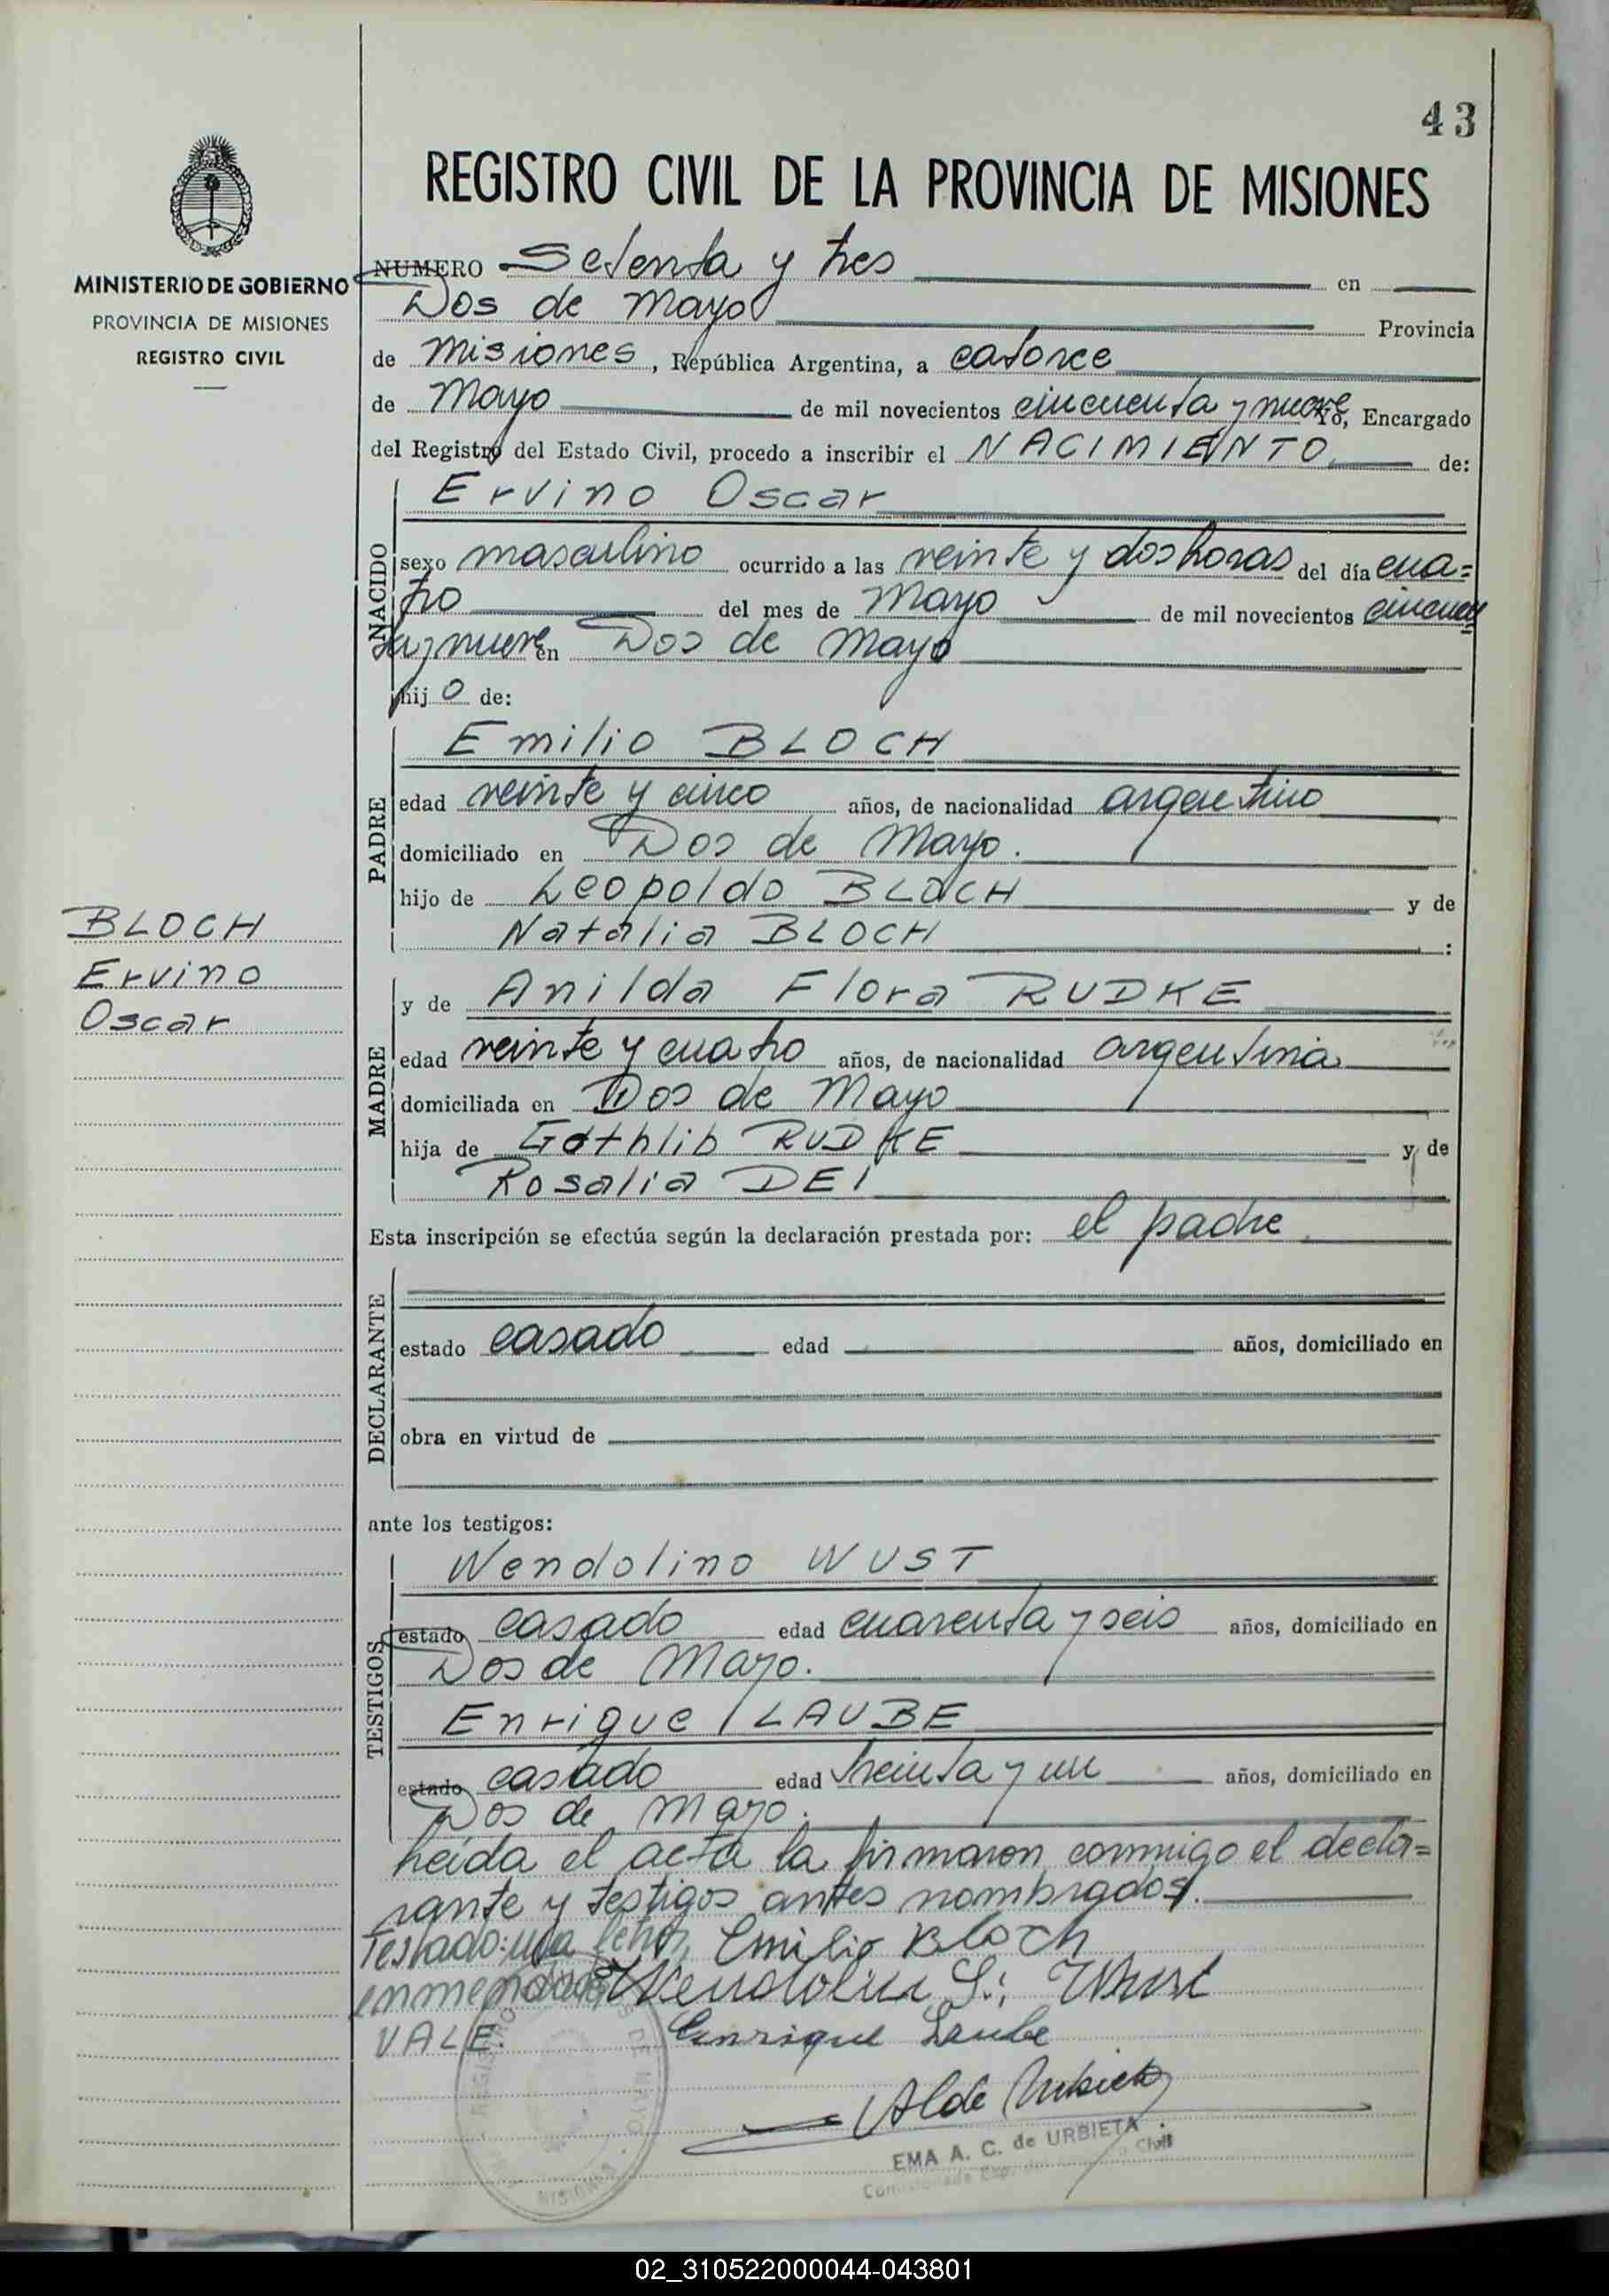 43
REGISTRO CIVIL DE LA PROVINCIA DE MISIONES
MINISTERIO DE GOBIERNO
PROVINCIA DE MISIONES
REGISTRO CIVIL
NUMERO Setenta y tres en
Dos de Mayo Provincia
de Misiones, República Argentina, a catorce
de Mayo de mil novecientos cincuenta y nueve Yo, Encargado
del Registro del Estado Civil, procedo a inscribir el NACIMIENTO de:
NACIDO
Ervino Oscar
sexo masculino ocurrido a las veinte y dos horas del día cua=
tro del mes de Mayo de mil novecientos cincuen
ta y nueve en Dos de Mayo
hijo de:
PADRE
Emilio BLOCH
edad veinte y cinco años, de nacionalidad argentino
domiciliado en Dos de Mayo.
hijo de Leopoldo BLOCH y de
Natalia BLOCH :
BLOCH
Ervino
Oscar
MADRE
y de Anilda Flora RUDKE
edad veinte y cuatro años, de nacionalidad argentina
domiciliada en Dos de Mayo
hija de Gothlib RUDKE y de
Rosalia DEI
Esta inscripción se efectúa según la declaración prestada por: el padre.
DECLARANTE
estado casado edad años, domiciliado en
obra en virtud de
ante los testigos:
TESTIGOS
Wendolino WUST
estado casado edad cuarenta y seis años, domiciliado en
Dos de Mayo.
Enrique LAUBE
estado casado edad treinta y un años, domiciliado en
Dos de Mayo.
Leída el acta la firmaron conmigo el decla=
rante y testigos antes nombrados.
Testado: una letra, Emilio Bloch
Wendolin Wust
VALE. Enrique Laube
EMA A. C. de URBIETA
Civil
DE MAYO
MISIONES
02_310522000044-043801